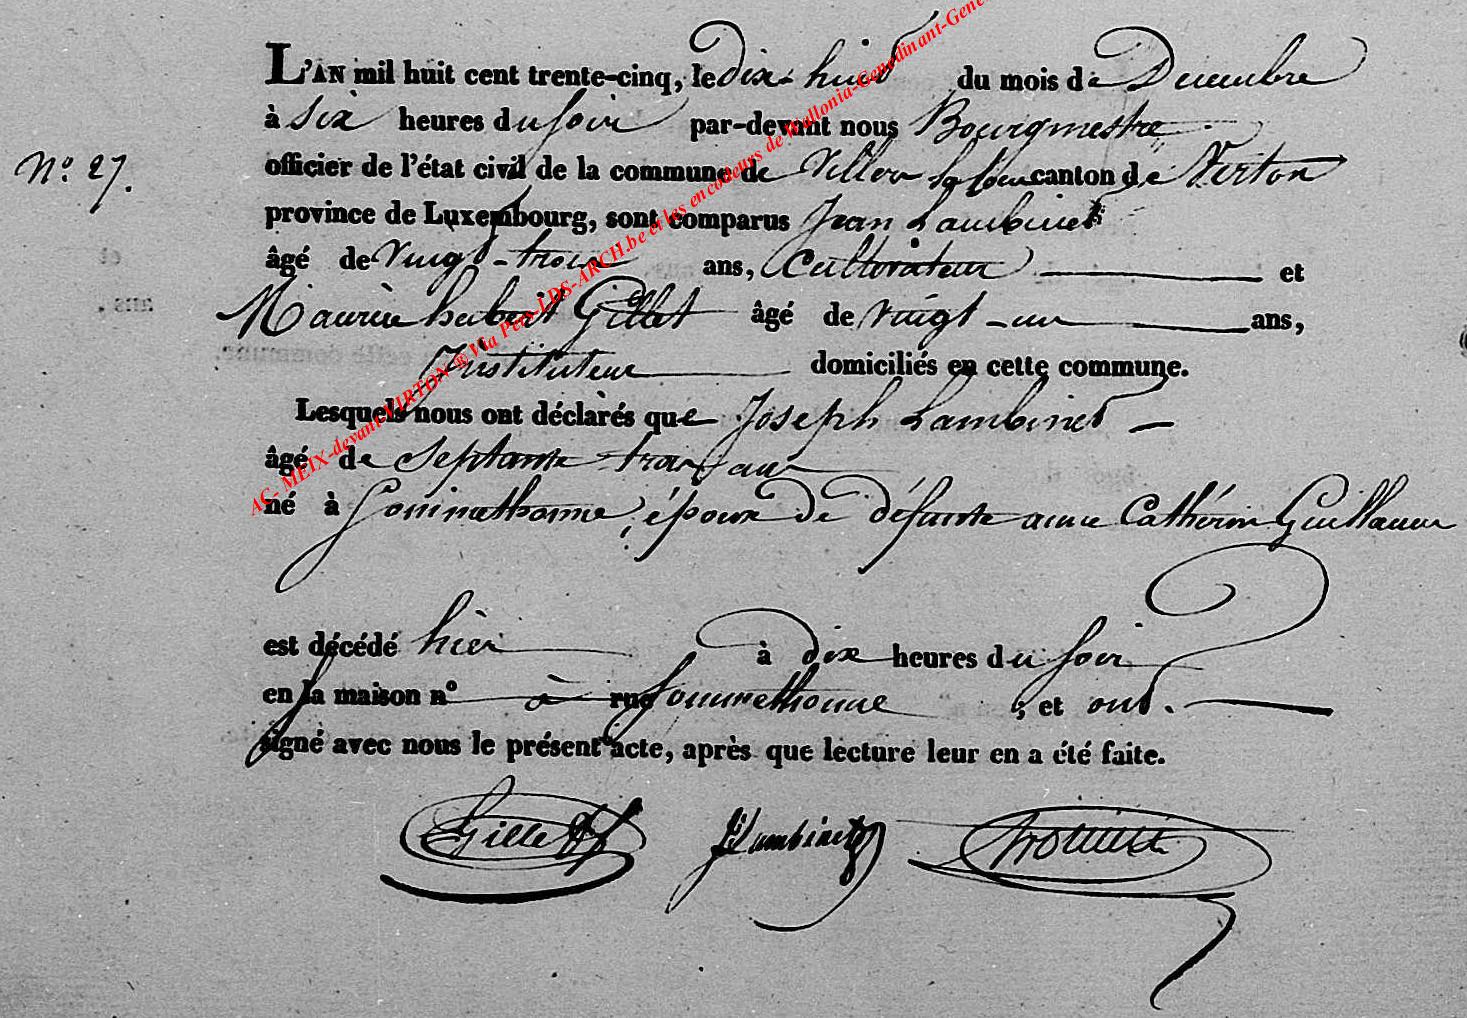 L'AN mil huit cent trente-cinq, le dix-huit du mois de Decembre
à six heures du soir par-devant nous Bourgmestre
N° 27.
officier de l'état civil de la commune de Villers la loue canton de Virton
province de Luxembourg, sont comparus Jean Lambinet
âgé de vingt-trois ans, Cultivateur et
Maurice hubert Gillet âgé de vingt-un ans,
Instituteur domiciliés en cette commune.
Lesquels nous ont déclarés que Joseph Lambinet
âgé de septante trois ans
né à Sommethonne, époux de défunte anne Cathérine Guillaume
est décédé hier à dix heures du soir
en la maison n° à rue Sommethonne ; et ont.
signé avec nous le présent acte, après que lecture leur en a été faite.
Gillet JLambinet
AC- MEIX-devant-VIRTON ® Via Pers-LDS-ARCH.be et les encodeurs de Wallonia-Genedinant-Gene